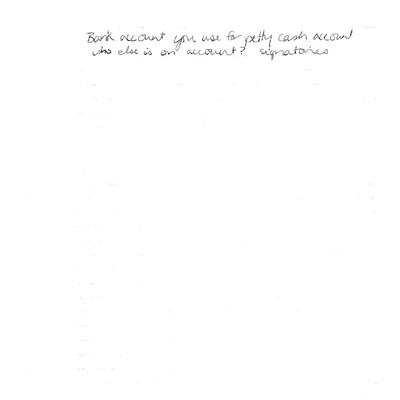 Bank account you use for petty cash account
who else is on account? signatories